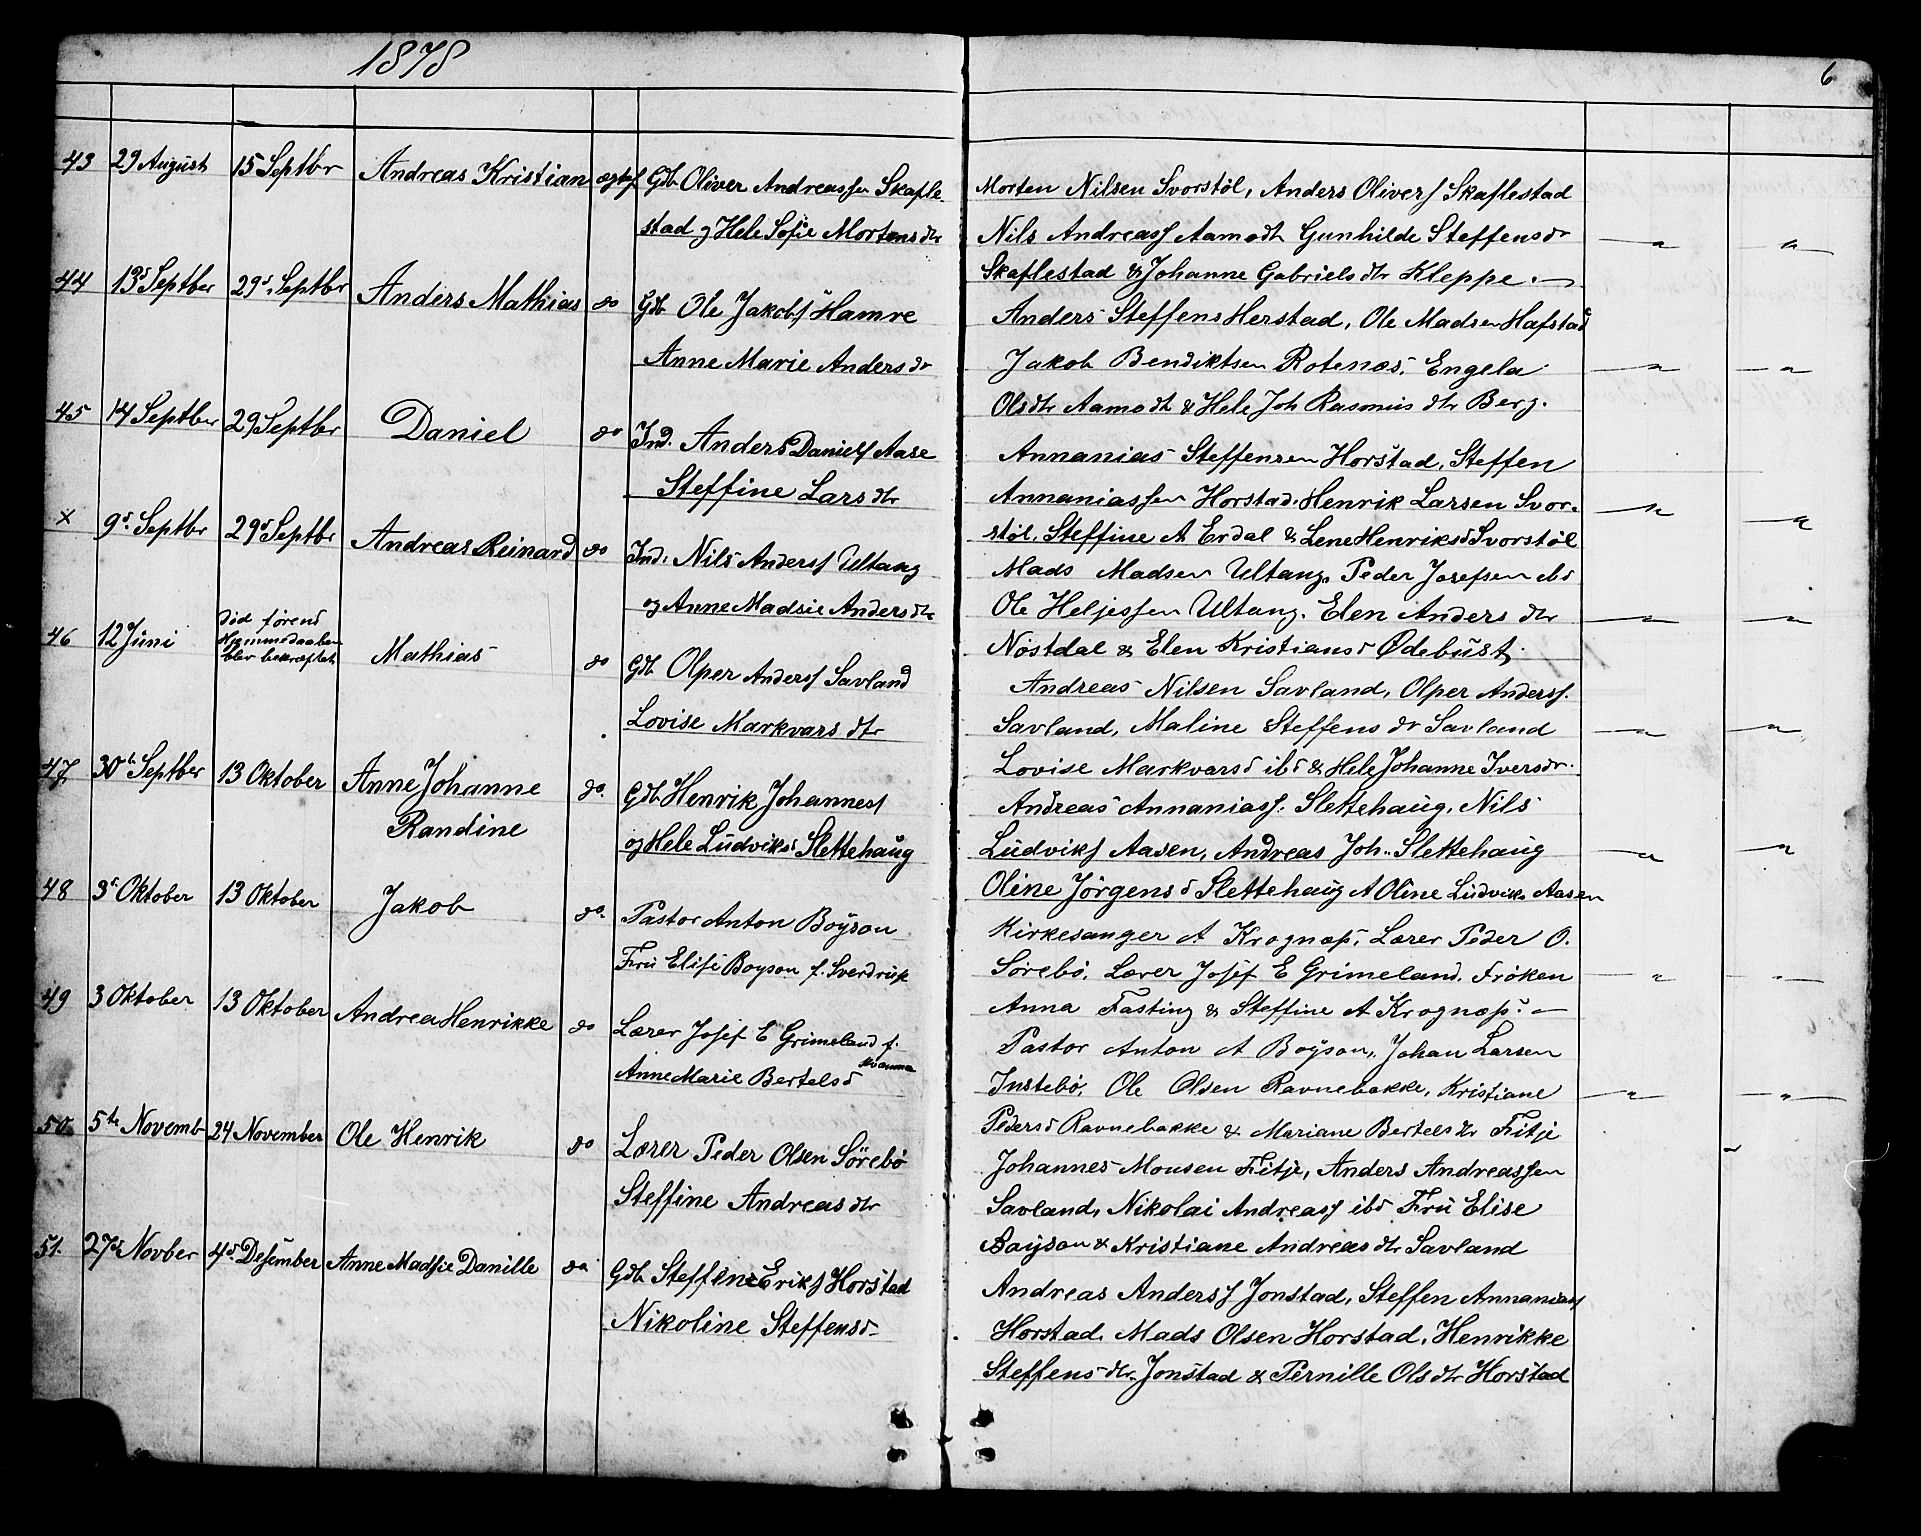 1878
6
43 29 August 15 Septbr Andreas Kristian ægtef Gdb Oliver Andreassen Skafle-
stad og Hele Sofie Mortensdtr
Morten Nilsen Svorstöl, Anders Olivers Skaflestad
Nils Andreass Aamodt Gunhilde Steffensdr
Skaflestad & Johanne Gabrielsdtr Kleppe.
44 13d Septber 29d Septbr Anders Mathias do Gdb Ole Jakobs Hamre
Anne Marie Andersdr
Anders Steffens Herstad, Ole Madsen Hafstad
Jakob Bendiktsen Rotenæs, Engela
Olsdtr Aamodt & Hele Joh Rasmus dtr Berg.
45 14 Septber 29 Septbr Daniel do Ind. Anders Daniels Aase
Steffine Larsdtr
Annanias Steffensen Horstad, Steffen
Annaniassen Horstad. Henrik Larsen Svor-
stöl, Steffine A Erdal & Lene Henriksd Svorstöl
x 9d Septbr 29d Septbr Andreas Reinard do Ind. Nils Anderss Ultang
og Anne Madsie Andersdtr
Mads Madsen Ultang, Peder Josefsen ibd
Ole Heljessen Ultang. Elen Andersdtr
Nöstdal & Elen Kristiansd Ødebust.
46 12 Juni död förend
Hjemmedaaben
blev bekræftet Mathias do Gdb Olper Anderss Savland
Lovise Markvarsdtr
Andreas Nilsen Savland, Olper Anderss.
Savland, Maline Steffensdr Savland
Lovise Markvarsd ibd & Hele Johanne Iversdr.
47 30te Septber 13 Oktober Anne Johanne
Randine do. Gdb Henrik Johanness
og Hele Ludviksd Slettehaug
Andreas Annaniass. Slettehaug, Nils
Ludviks Aasen, Andreas Joh. Slettehaug
Oline Jörgensd Slettehaug A Oline Ludviks Aasen
48 3d Oktober 13 Oktober Jakob do. Pastor Anton Boyson
Fru Elise Boyson f. Sverdrup
Kirkesanger A Krognæs, Lærer Peder O.
Sörebö, Lærer Josef E Grimeland, Fröken
Anna Fasting & Steffine A Krognæs.
49 3 Oktober 13 Oktober Andrea Henrikke do Lærer Josef E Grimeland f.
Anne Marie Bertelsd Kvamme
Pastor Anton A Boyson, Johan Larsen
Instebö, Ole Olsen Ravnebakke, Kristiane
Pedersd Ravnebakke & Mariane Bertelsdtr Fitje
50 5te Novemb 24 November Ole Henrik do Lærer Peder Olsen Sörebö
Steffine Andreasdtr
Johannes Monsen Fitje, Anders Andreassen
Savland, Nikolai Andreass ibd Fru Elise
Boyson & Kristiane Andreasdtr Savland
51. 27d Novber 4d. Desember Anne Madsie Danille do Gdb Steffen Eriks Horstad
Nikoline Steffensd
Andreas Anderss Jonstad, Steffen Annaniass
Horstad. Mads Olsen Horstad, Henrikke
Steffensdtr Jonstad & Pernille Olsdtr Horstad